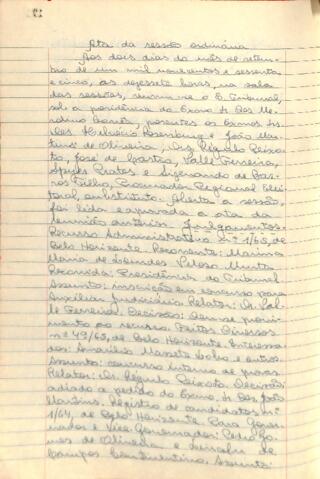 Ata da sessão ordinária
Aos dois dias do mês de setem-
bro de um mil novecentos e sessenta
e cinco, às dezessete horas, na sala
das sessões, reuniu-se o E. Tribunal,
sob a presidência do Exmo. Sr. Des. Me-
rolino Corrêa, presentes os Exmos. Srs.
Des. Helvécio Rosenburg e João Mar-
tins de Oliveira, Drs. Régulo Peixo-
to, José de Castro, Valle Ferreira,
Prates e Sizenando de Bar-
ros Filho, Procurador Regional Elei-
toral, substituto. Aberta a sessão,
foi lida e aprovada a ata da
reunião anterior. Julgamentos:
Recurso Administrativo nº 1/65, de
Belo Horizonte. Recorrente: Marina
Maria de Lourdes Peloso
Recorrida: Presidência do Tribunal
Assunto: inscrição em concurso para
Auxiliar Judiciário. Relator: Dr. Val-
le Ferreira. Decisão: Deram provi-
mento ao recurso. Feitos Diversos
nº 49/65, de Belo Horizonte. Interessa-
dos: Amarílio e outros.
Assunto: concurso interno de provas
Relator: Dr. Régulo Peixoto. Decisão:
adiado a pedido do Exmo. Sr. Des. João
Martins. Registro de candidatos nº
1/64, de Belo Horizonte. Para Gover-
nador e Vice-Governador: Pedro Go-
mes de Oliveira e
Campos Assunto: